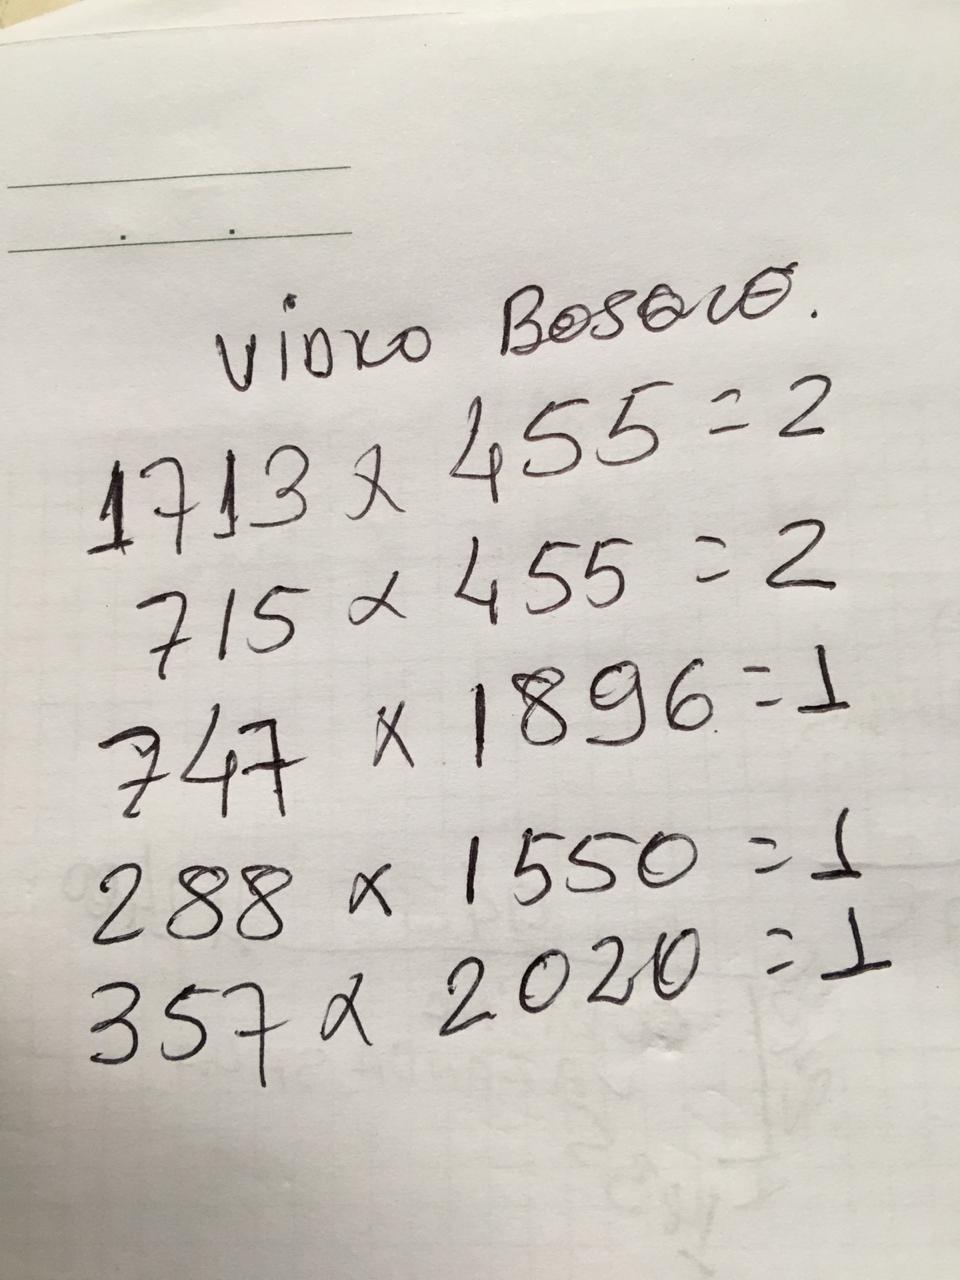 VIDRO BOSERO.
1713 x 455 = 2
715 x 455 = 2
747 x 1896 = 1
288 x 1550 = 1
357 x 2020 = 1